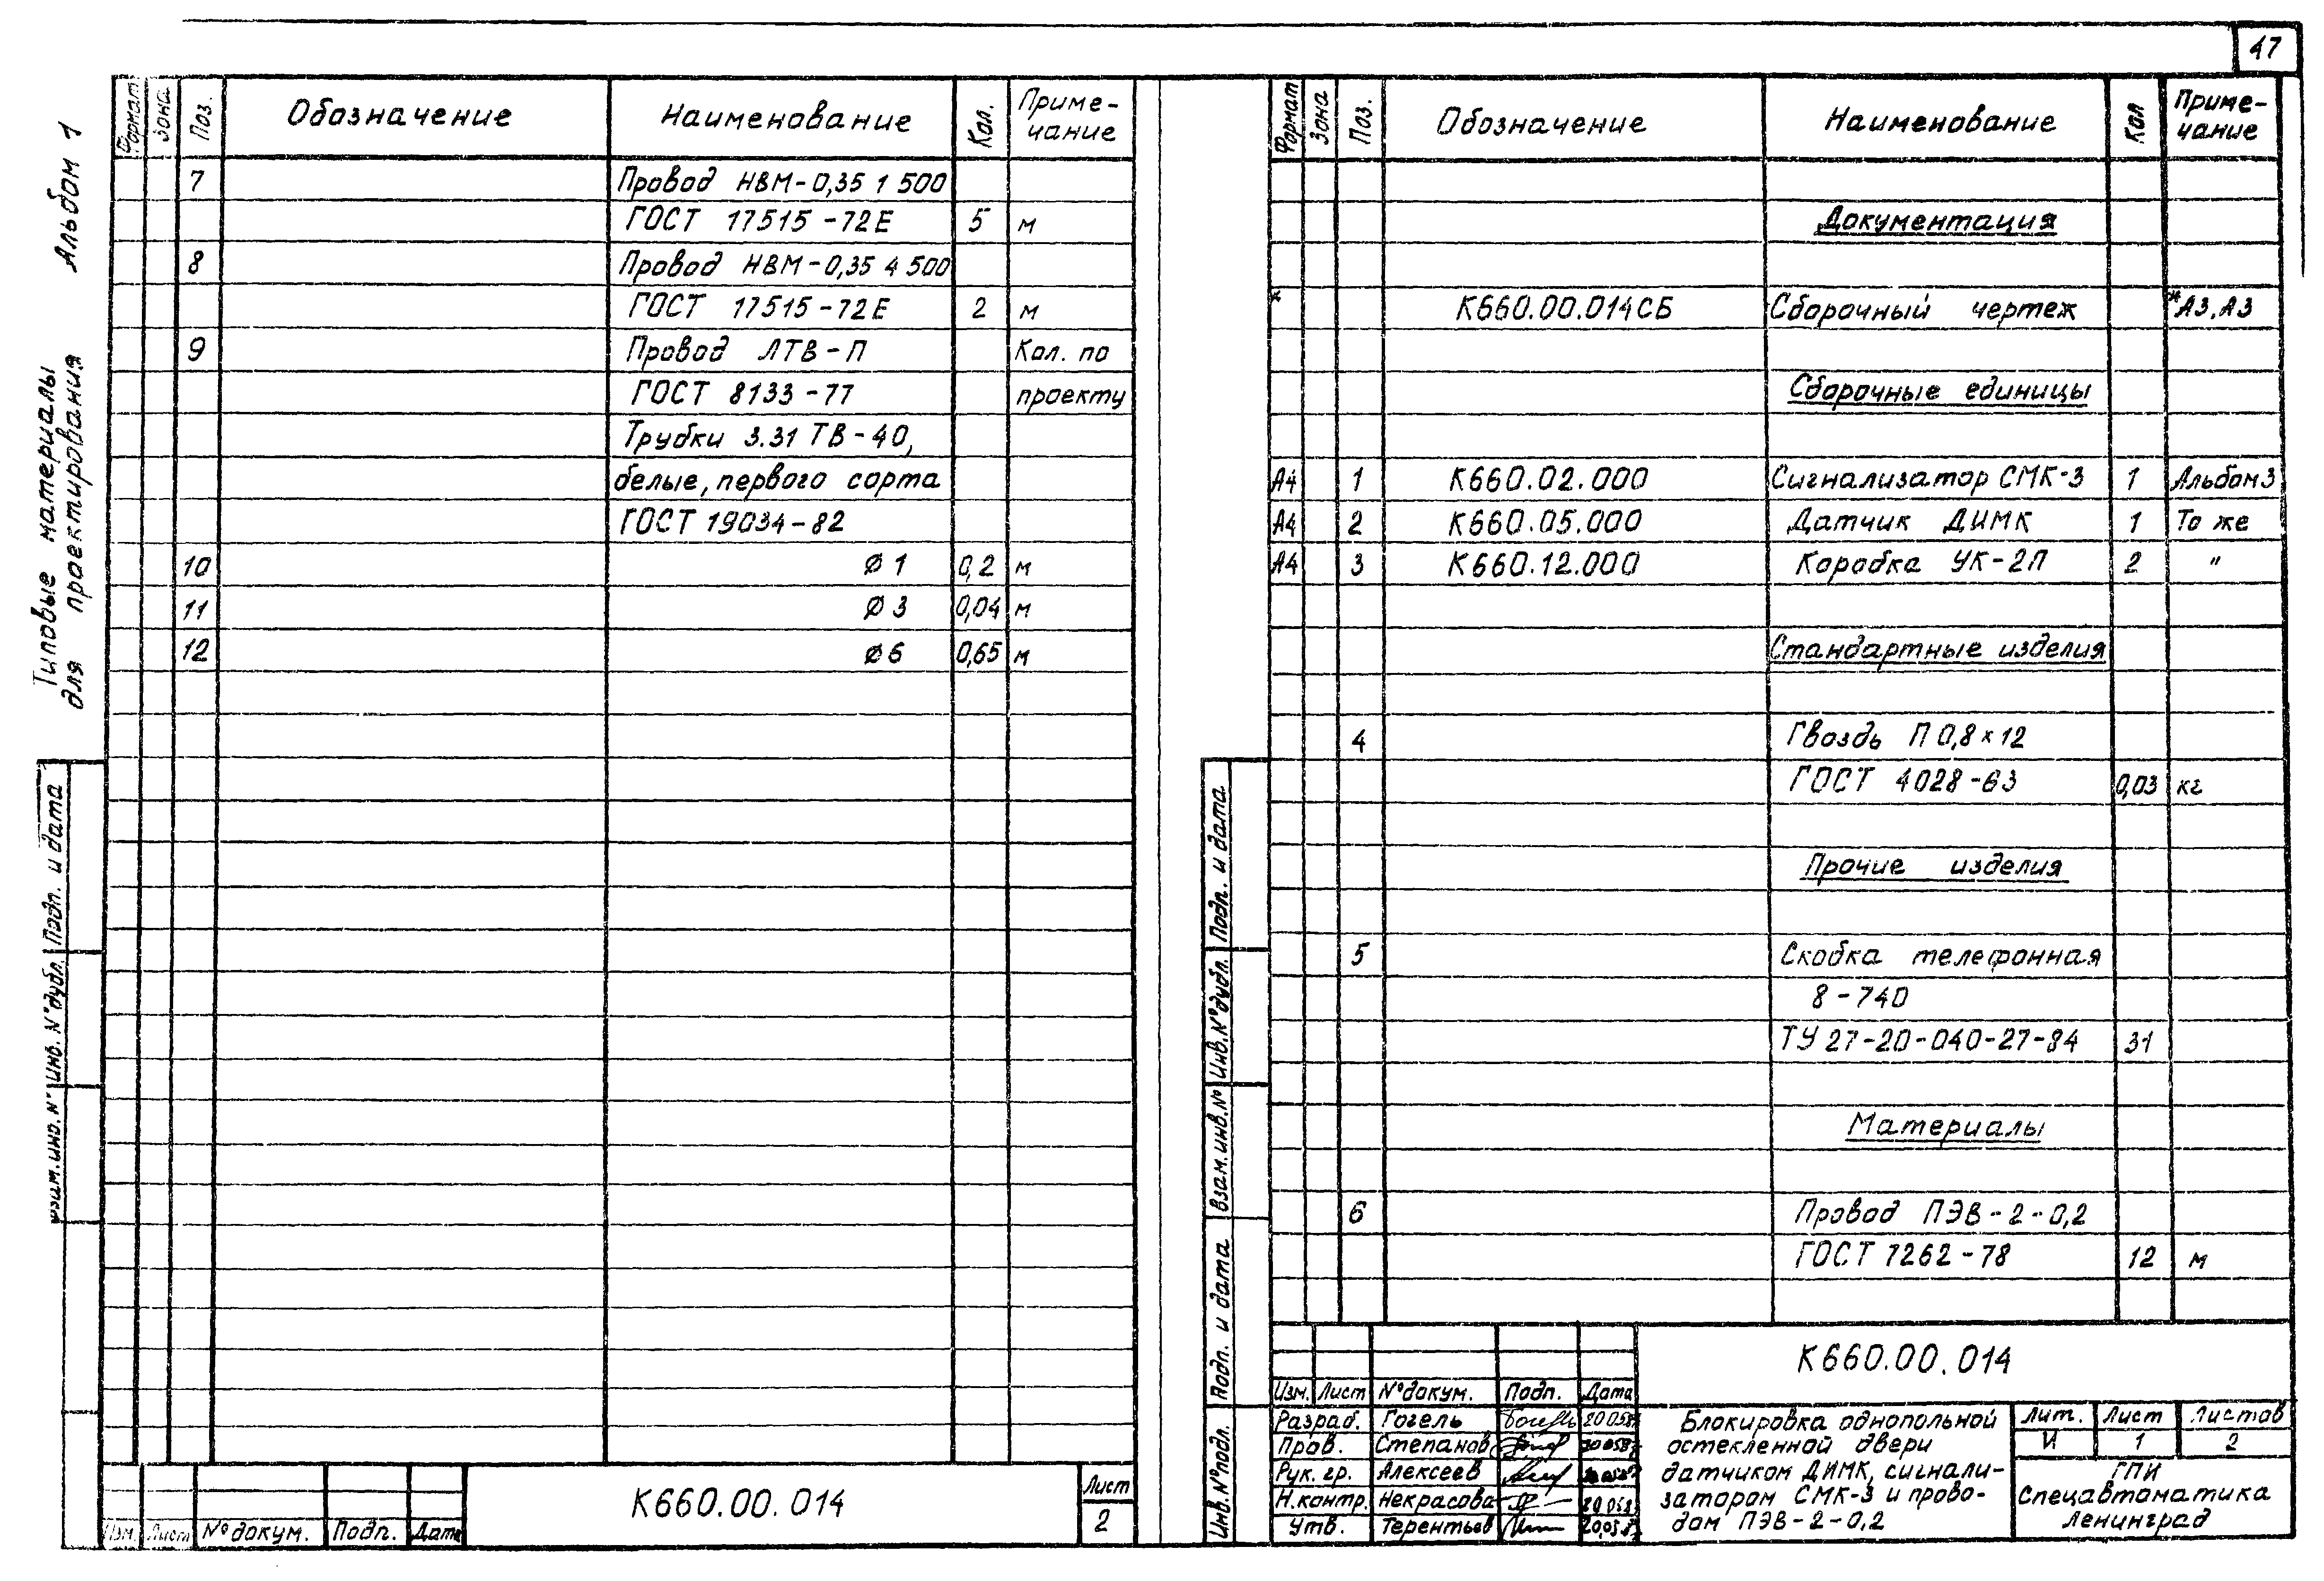 47
Типовые материалы Альбом 1
для проектирования
Формат Зона Поз. Обозначение Наименование Кол. Приме-
чание
7 Провод НВМ-0,35 1 500
ГОСТ 17515-72Е 5 м
8 Провод НВМ-0,35 4 500
ГОСТ 17515-72Е 2 м
9 Провод ЛТВ-П Кол. по
ГОСТ 8133-77 проекту
Трубки 3.31 ТВ-40,
белые, первого сорта
ГОСТ 19034-82
10 Ø 1 0,2 м
11 Ø 3 0,04 м
12 Ø 6 0,65 м
Подп. и дата
Инв. № дубл.
Взам. инв. №
Изм. Лист № докум. Подп. Дата
К660.00.014
Лист
2
Формат Зона Поз. Обозначение Наименование Кол Приме-
чание
Документация
* К660.00.014СБ Сборочный чертеж *А3, А3
Сборочные единицы
А4 1 К660.02.000 Сигнализатор СМК-3 1 Альбом 3
А4 2 К660.05.000 Датчик ДИМК 1 То же
А4 3 К660.12.000 Коробка УК-2П 2 "
Стандартные изделия
4 Гвоздь П 0,8×12
ГОСТ 4028-63 0,03 кг
Прочие изделия
5 Скобка телефонная
8-740
ТУ 27-20-040-27-84 31
Материалы
6 Провод ПЭВ-2-0,2
ГОСТ 7262-78 12 м
Подп. и дата
Инв. № дубл.
Взам. инв. №
Подп. и дата
Инв. № подл.
К660.00.014
Изм. Лист № докум. Подп. Дата
Разраб. Гогель
Пров. Степанов
Рук. гр. Алексеев
Н.контр. Некрасова
Утв. Терентьев
Блокировка однопольной
остекленной двери
датчиком ДИМК, сигнали-
затором СМК-3 и прово-
дом ПЭВ-2-0,2
Лит. Лист Листов
И 1 2
ГПИ
Спецавтоматика
Ленинград